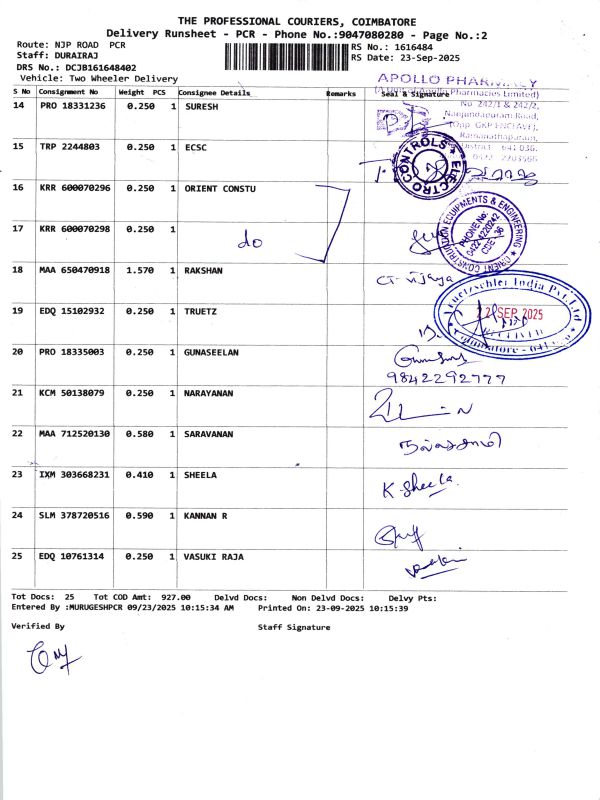 THE PROFESSIONAL COURIERS, COIMBATORE
Delivery Runsheet - PCR - Phone No.:9047080280 - Page No.:2
Route: NJP ROAD PCR
RS No.: 1616484
Staff: DURAIRAJ
RS Date: 23-Sep-2025
DRS No.: DCJB161648402
Vehicle: Two Wheeler Delivery
S No Consignment No Weight PCS Consignee Details Remarks Seal & Signature
APOLLO PHARMACY
Pharmacies Limited)
No. 242/1 & 242/2,
Nanjundapuram Road,
(Opp. GKP ENCLAVE),
Ramanathapuram,
District - 641 036.
14 PRO 18331236 0.250 1 SURESH
15 TRP 2244803 0.250 1 ECSC
ELECTRO CONTROLS
16 KRR 600070296 0.250 1 ORIENT CONSTU
ORIENT CONSTRUCTION EQUIPMENTS & ENGINEERING
PHONE No:
04224220242
CDE - 36
17 KRR 600070298 0.250 1
do
18 MAA 650470918 1.570 1 RAKSHAN
CT-விஜய
19 EDQ 15102932 0.250 1 TRUETZ
Truetzschler India Pvt. Ltd
22 SEP 2025
RECEIVED
20 PRO 18335003 0.250 1 GUNASEELAN
9842292777
21 KCM 50138079 0.250 1 NARAYANAN
22 MAA 712520130 0.580 1 SARAVAN
23 IXM 303668231 0.410 1 SHEELA
K. Sheela.
24 SLM 378720516 0.590 1 KANNAN R
25 EDQ 10761314 0.250 1 VASUKI RAJA
Tot Docs: 25 Tot COD Amt: 927.00 Delvd Docs: Non Delvd Docs: Delvy Pts:
Entered By :MURUGESHPCR 09/23/2025 10:15:34 AM Printed On: 23-09-2025 10:15:39
Verified By Staff Signature